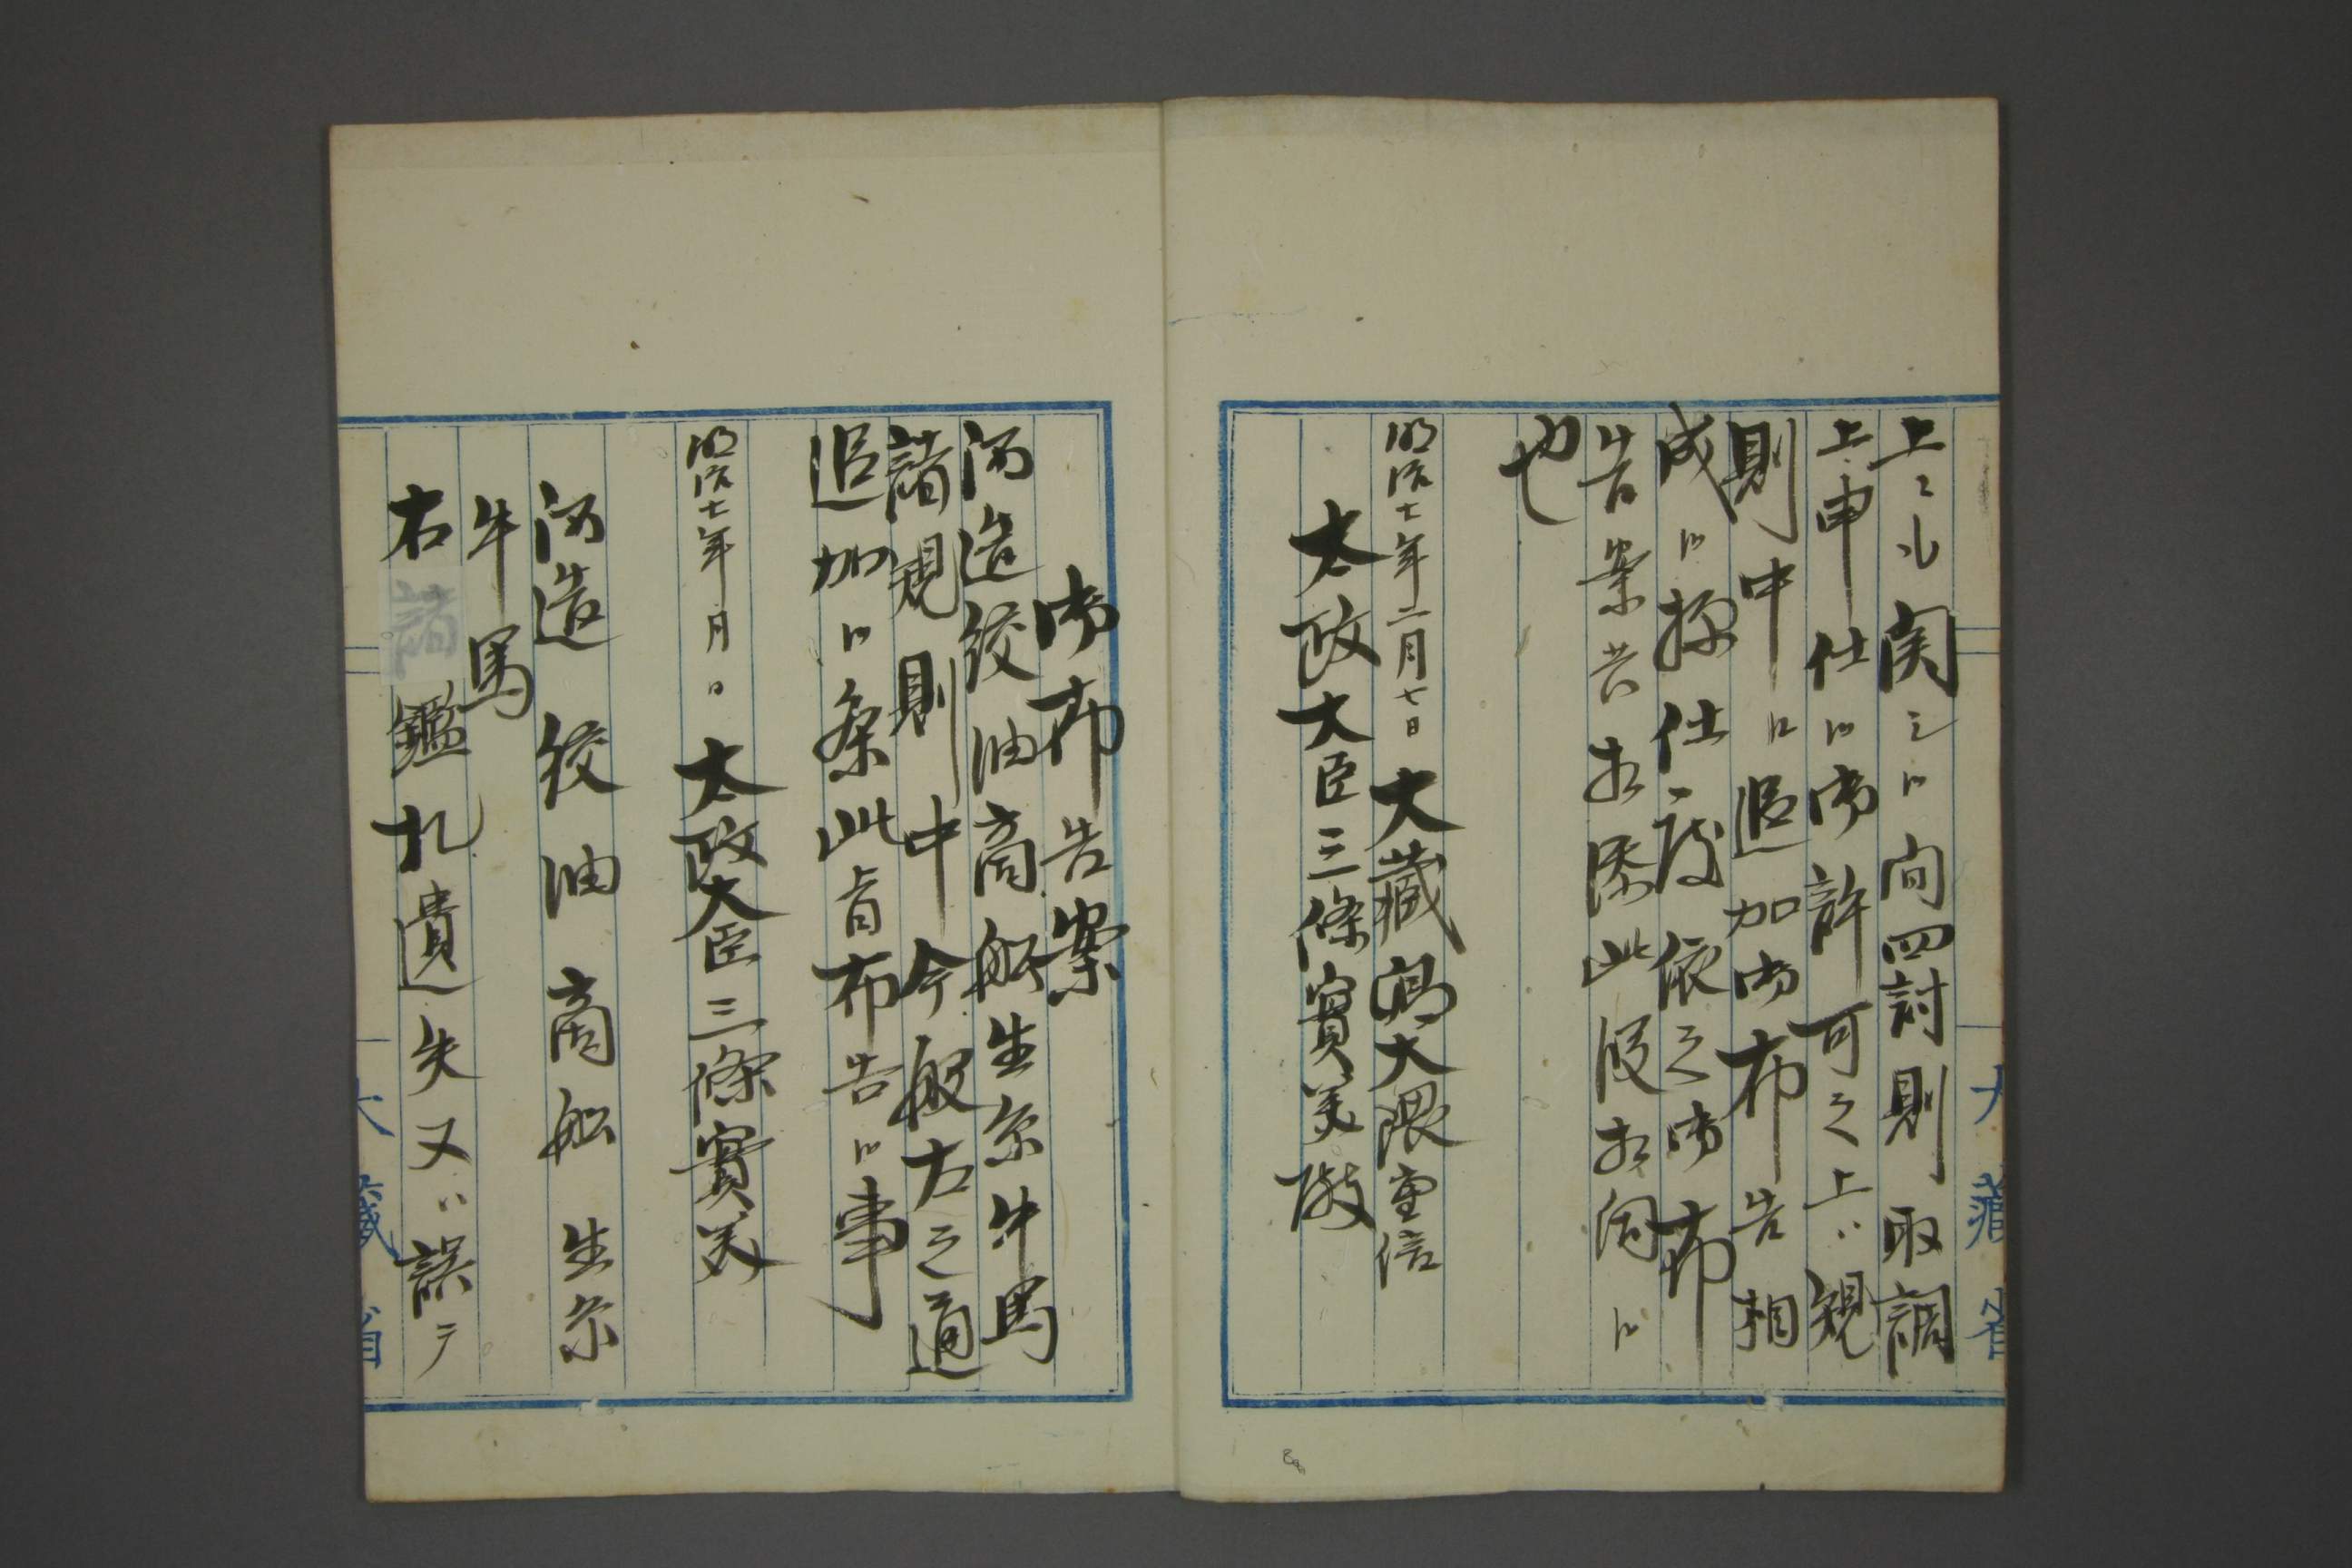 上ニも関シ候間罰則取調
上申仕候御許可之上ハ規
則中ニ追加御布告相
成候様仕度依之御布
告案共相添此段相伺候
也
明治七年二月七日 大藏卿大隈重信
太政大臣三條實美殿
大藏省
御布告案
酒造絞油商船生糸牛馬
諸規則中今般左之通
追加候条此旨布告候事
明治七年 月 日 太政大臣三條實美
酒造 絞油 商船 生糸
牛馬
右諸鑑札遺失又ハ誤テ
大藏省